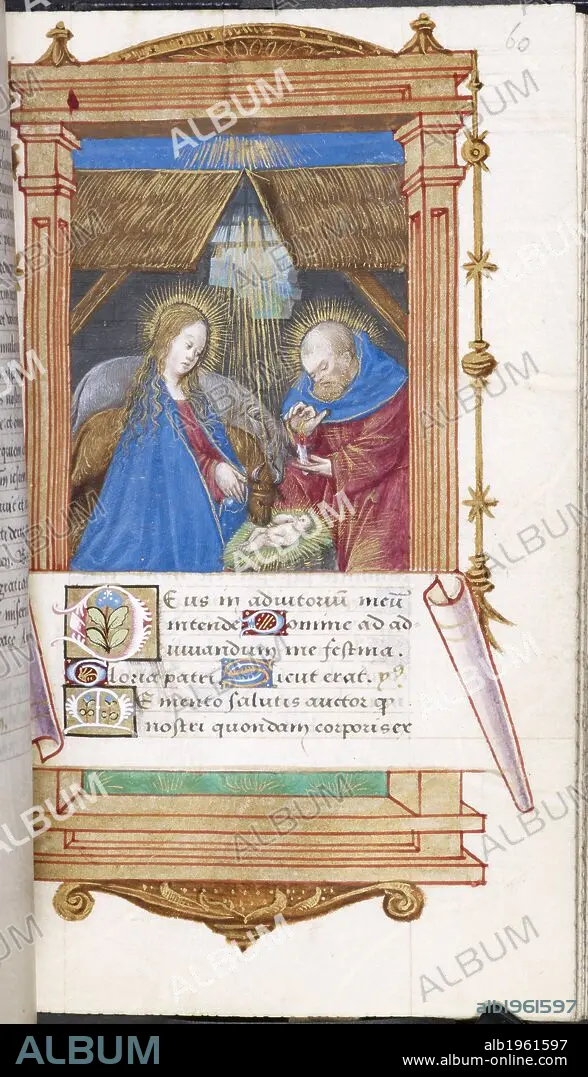 60
Deus in adiutoriū meū
intende Domine ad ad
iuuandum me festina.
Gloria patri Sicut erat.
Memento salutis auctor
nostri quondam corporis ex
ALBUM
alb1961597
ALBUM
alb1961597
www.album-online.com